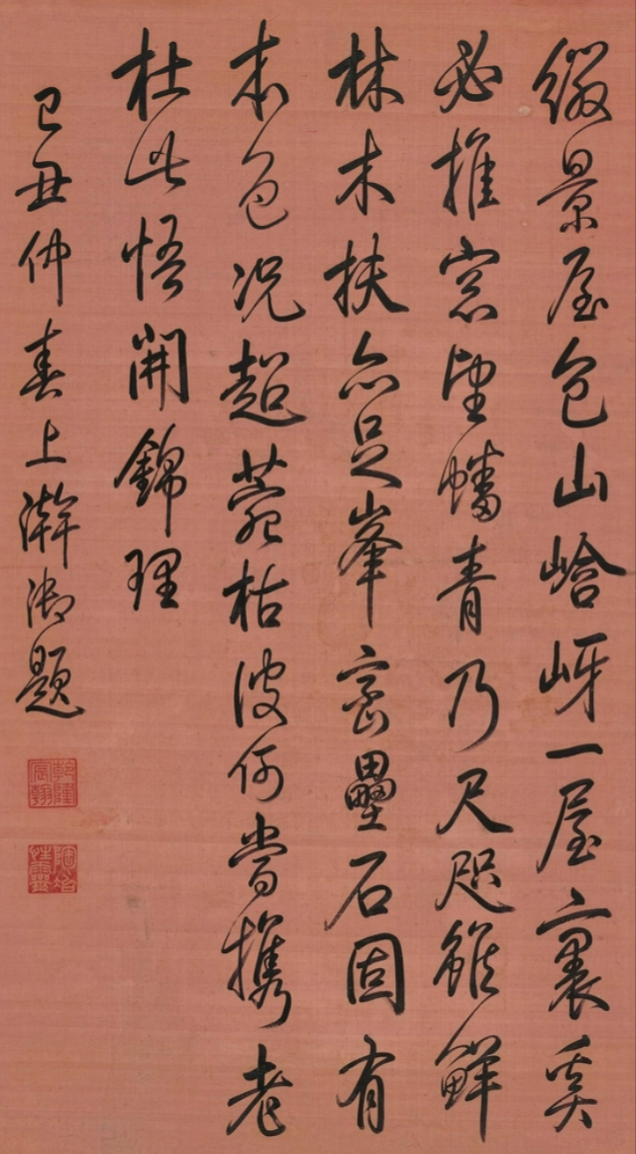 綴景屋包山峆岈一屋裏奚
必推窓望蟠青乃尺咫雖鮮
林木扶亦足峯密壘石固有
本色況超菀枯彼何當攜老
杜此悟開錦理
己丑仲春上澣御題
乾隆宸翰
陶冶性靈